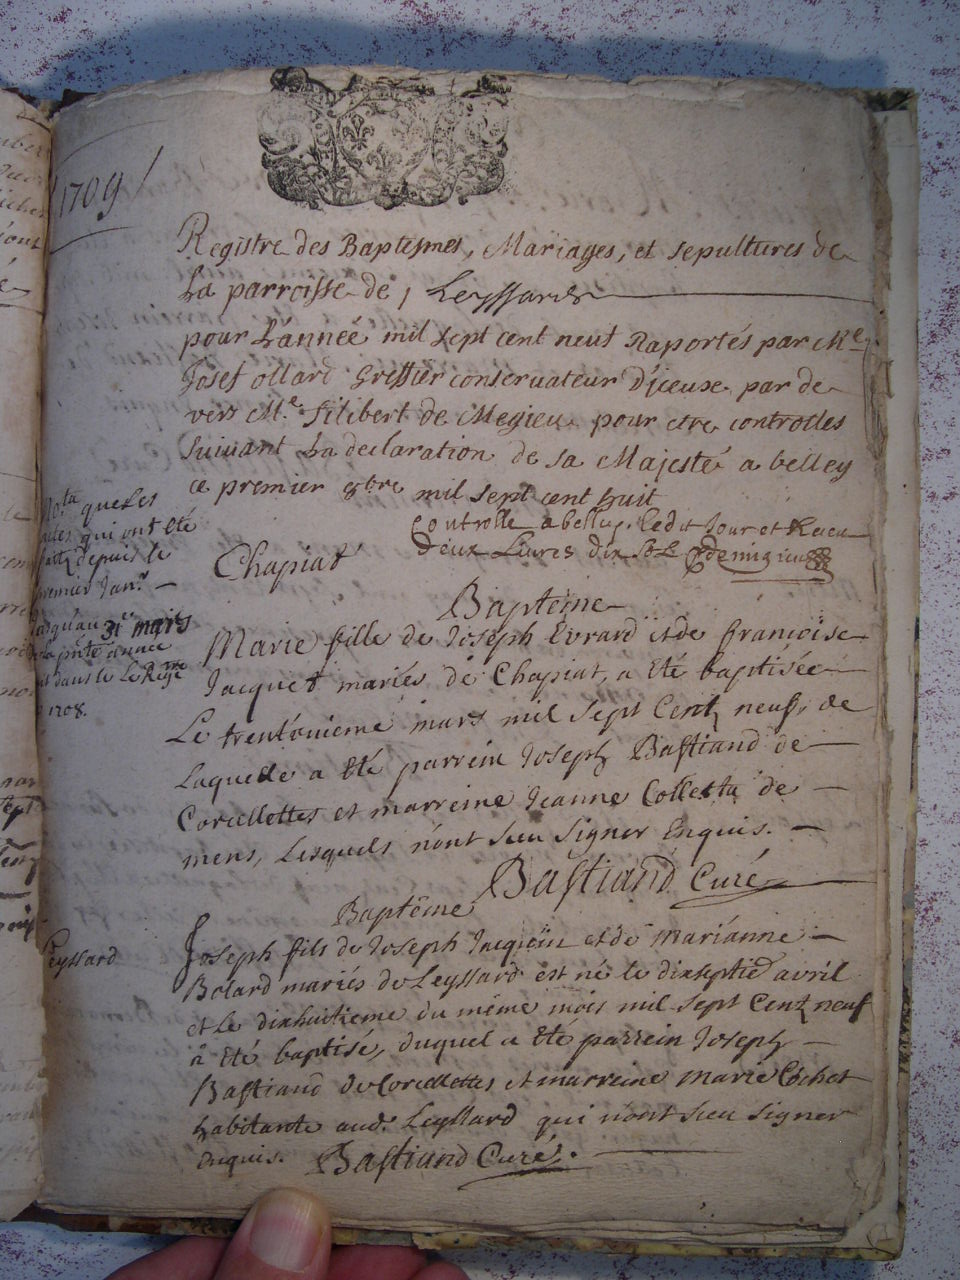 1709
Registre des Baptesmes, Mariages, et sepultures de
La parroisse de, Leyssard
pour L'année mil sept cent neuf Raportés par Me
Josef ollard Greffier conservateur d'iceux par de
vers Me. filibert de Megieu pour etre controlles
suivant La declaration de sa Majesté a belley
ce premier 8bre mil sept cent huit
Controlle a belley, Ledit Jour et Receu
Deux Livres dix sols
No.ta que Les
actes qui ont été
faits depuis le
premier Janr.
jusqu'au 31e mars
dans le Regtre
1708.
Chapiat
Baptême
Marie fille de Joseph Evrard et de françoise
Jacquet mariés de Chapiat, a été baptisée
Le trentunieme mars mil sept Centz neuf, de
Laquelle a été parrein Joseph Bastiand de
Corcellettes et marreine Jeanne Collesta de
mens, Lesquels n'ont sceu signer Enquis.
Bastiand Curé
Baptême
Leyssard
Joseph fils de Joseph Jacquin et de Marianne
Bolard mariés de Leyssard est né le dixseptie avril
et Le dixhuitieme du même mois mil sept Centz neuf
a été baptisé, duquel a été parrein Joseph
Bastiand de Corcellettes et marreine Marie Cochet
habitante aud. Leyssard qui n'ont sceu signer
Enquis. Bastiand Curé.